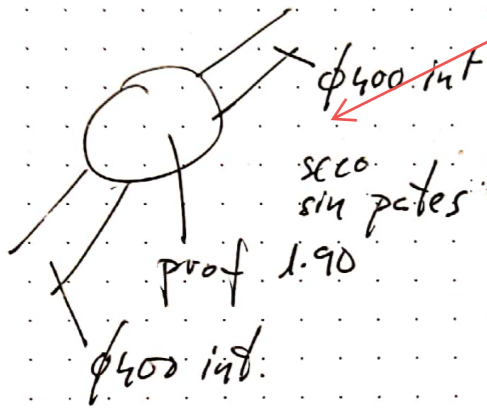 ϕ400 int
seco
sin pates
prof 1.90
ϕ400 int.